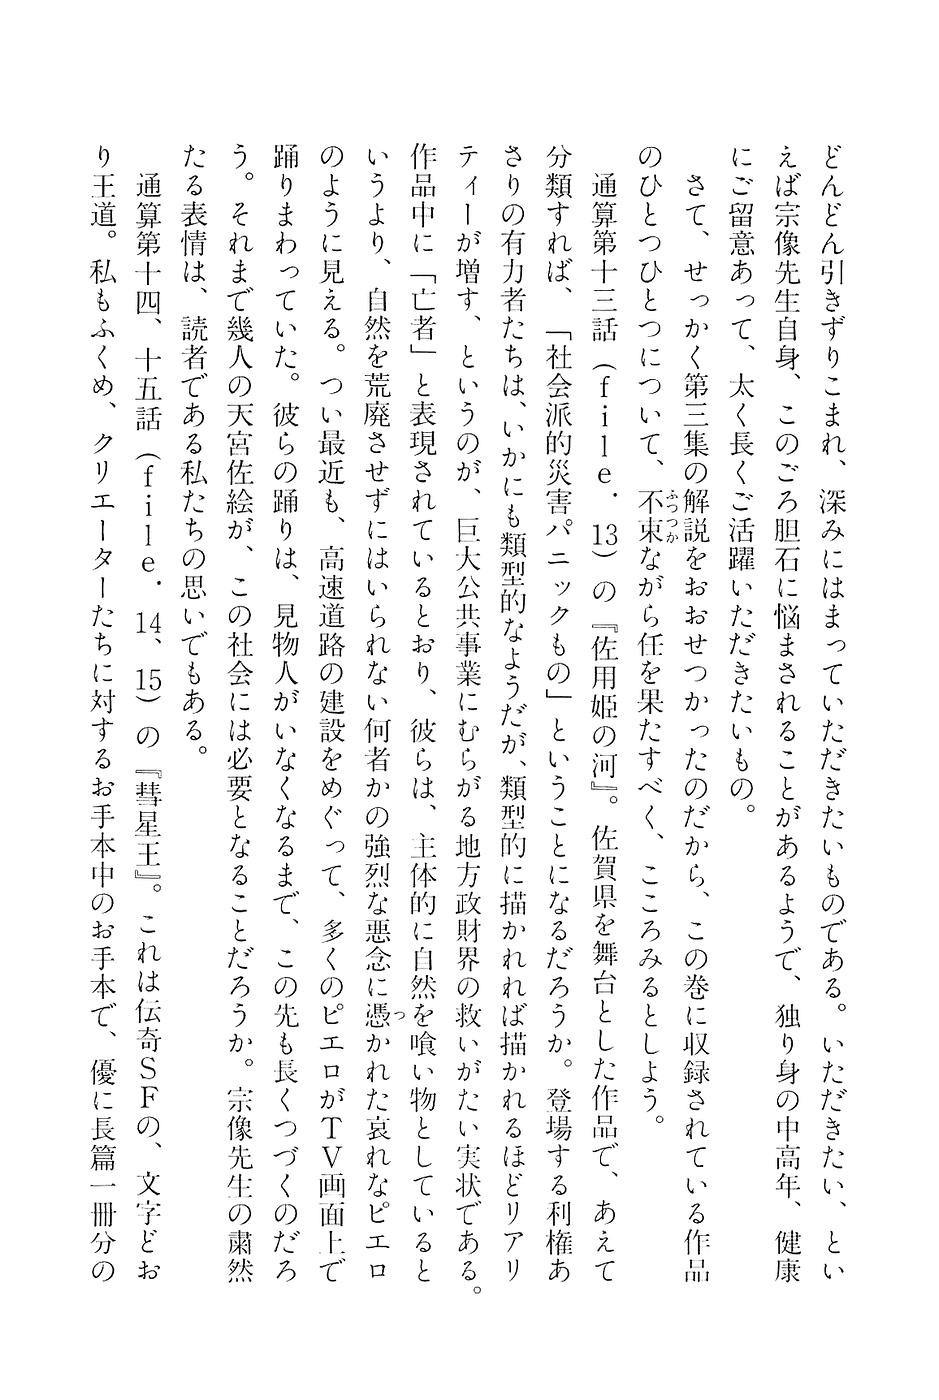 どんどん引きずりこまれ、深みにはまっていただきたいものである。いただきたい、とい
えば宗像先生自身、このごろ胆石に悩まされることがあるようで、独り身の中高年、健康
にご留意あって、太く長くご活躍いただきたいもの。
　さて、せっかく第三集の解説をおおせつかったのだから、この巻に収録されている作品
のひとつひとつについて、不束ながら任を果たすべく、こころみるとしよう。
　通算第十三話（file. 13）の『佐用姫の河』。佐賀県を舞台とした作品で、あえて
分類すれば、「社会派的災害パニックもの」ということになるだろうか。登場する利権あ
さりの有力者たちは、いかにも類型的なようだが、類型的に描かれれば描かれるほどリアリ
ティーが増す、というのが、巨大公共事業にむらがる地方政財界の救いがたい実状である。
作品中に「亡者」と表現されているとおり、彼らは、主体的に自然を喰い物としていると
いうより、自然を荒廃させずにはいられない何者かの強烈な悪念に憑かれた哀れなピエロ
のように見える。つい最近も、高速道路の建設をめぐって、多くのピエロがTV画面上で
踊りまわっていた。彼らの踊りは、見物人がいなくなるまで、この先も長くつづくのだろ
う。それまで幾人の天宮佐絵が、この社会には必要となることだろうか。宗像先生の粛然
たる表情は、読者である私たちの思いでもある。
　通算第十四、十五話（file. 14、15）の『彗星王』。これは伝奇SFの、文字どお
り王道。私もふくめ、クリエーターたちに対するお手本中のお手本で、優に長篇一冊分の